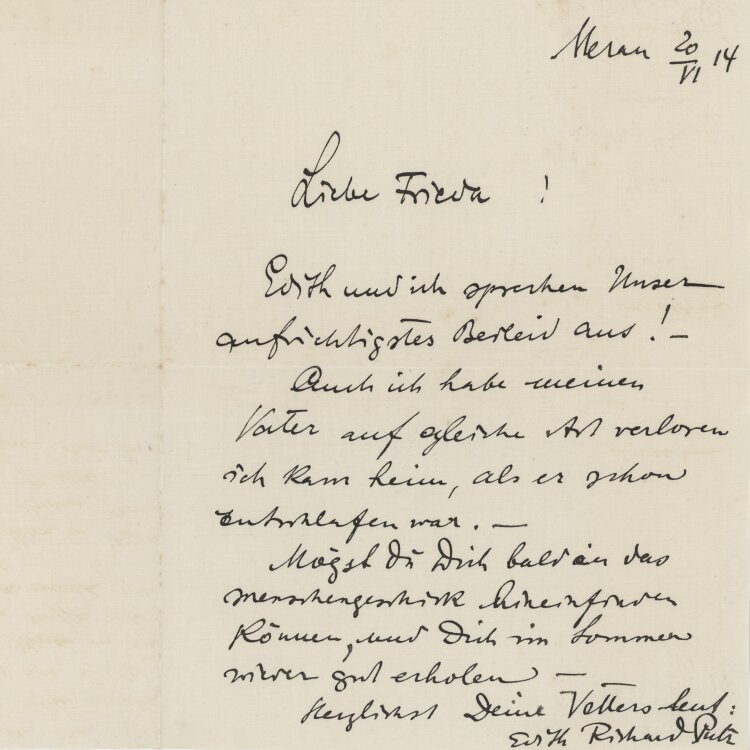 Meran 20/VI 14
Liebe Frieda !
Edith und ich sprechen Unser
aufrichtigstes Beileid aus ! –
Auch ich habe meinen
Vater auf gleiche Art verloren
ich kam heim, als er schon
entschlafen war. –
Mögst Du Dich bald in das
Menschengeschick hineinfinden
können, und Dich im Sommer
wieder gut erholen –
Herzlichst Deine Vettersleut :
Edith Richard Putz